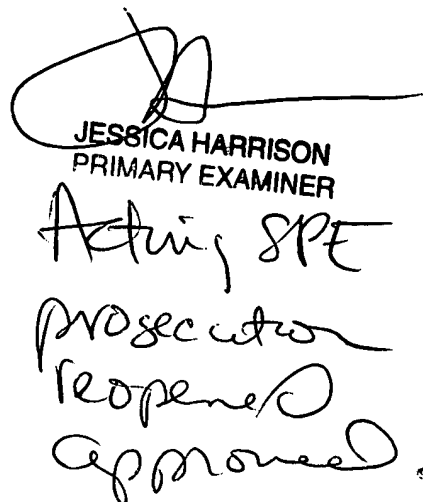 JESSICA HARRISON
PRIMARY EXAMINER
Acting SPE
prosecution
reopened
approved.